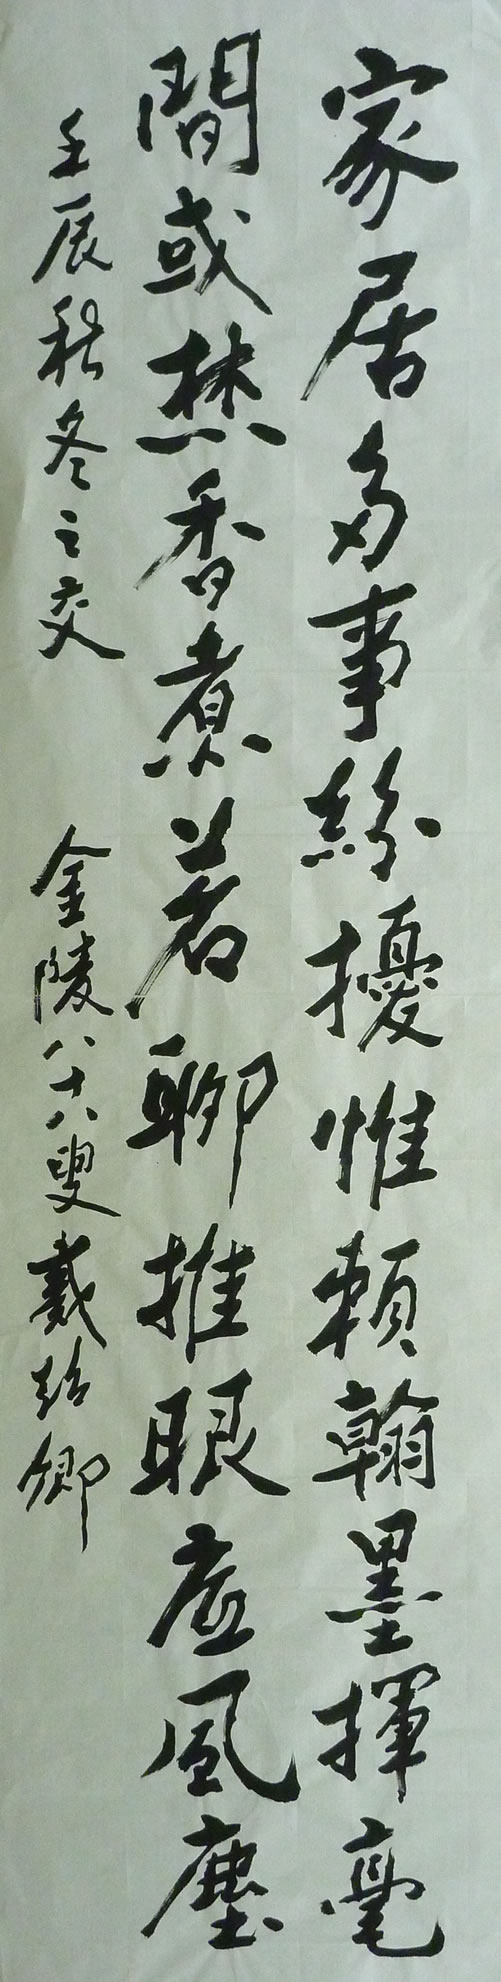 家居多事紛擾惟賴翰墨揮毫
間或焚香煮茗聊推眼虛風塵
壬辰秋冬之交 金陵八十八叟戴卿